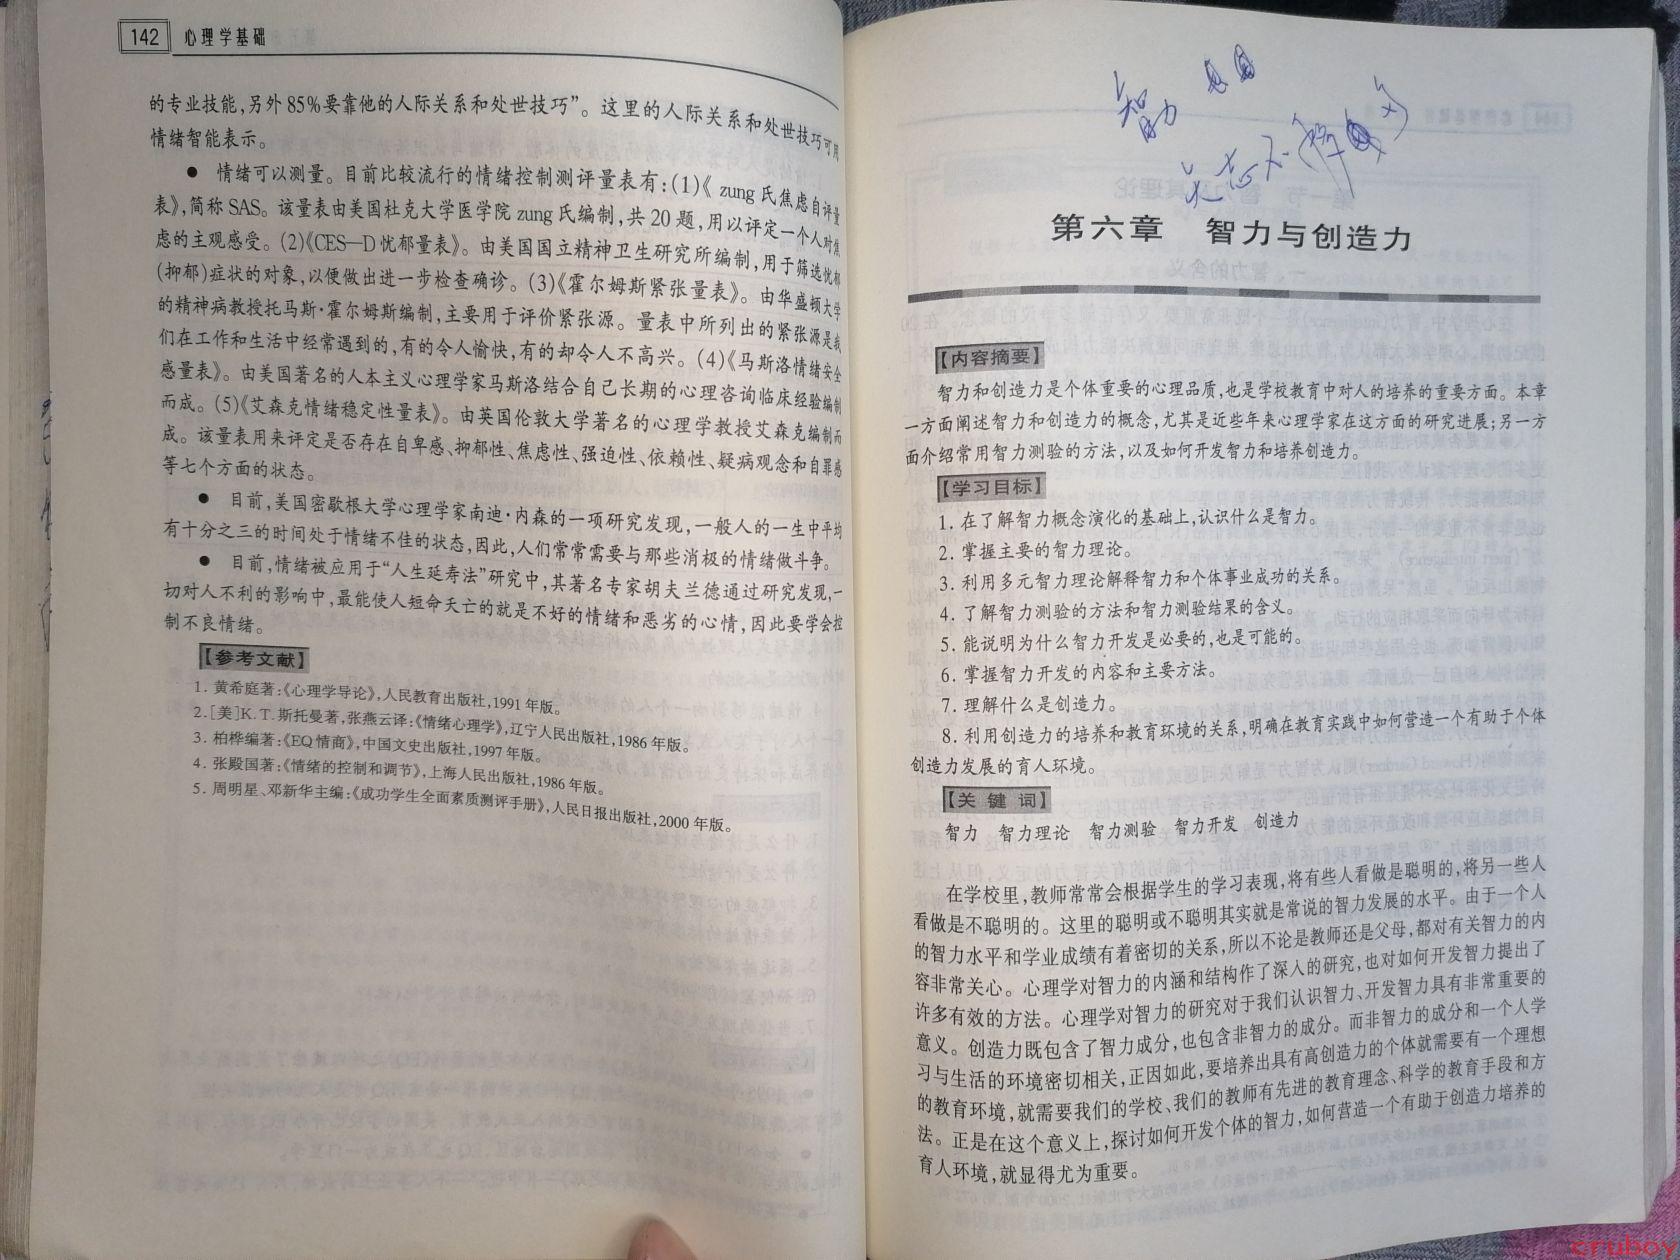 142 心理学基础
的专业技能,另外85%要靠他的人际关系和处世技巧”。这里的人际关系和处世技巧可用
情绪智能表示。
● 情绪可以测量。目前比较流行的情绪控制测评量表有:(1)《 zung 氏焦虑自评量
表》,简称 SAS。该量表由美国杜克大学医学院 zung 氏编制,共20题,用以评定一个人对焦
虑的主观感受。(2)《CES—D 忧郁量表》。由美国国立精神卫生研究所编制,用于筛选忧郁
(抑郁)症状的对象,以便做出进一步检查确诊。(3)《霍尔姆斯紧张量表》。由华盛顿大学
的精神病教授托马斯·霍尔姆斯编制,主要用于评价紧张源。量表中所列出的紧张源是我
们在工作和生活中经常遇到的,有的令人愉快,有的却令人不高兴。(4)《马斯洛情绪安全
感量表》。由美国著名的人本主义心理学家马斯洛结合自己长期的心理咨询临床经验编制
而成。(5)《艾森克情绪稳定性量表》。由英国伦敦大学著名的心理学教授艾森克编制而
成。该量表用来评定是否存在自卑感、抑郁性、焦虑性、强迫性、依赖性、疑病观念和自罪感
等七个方面的状态。
● 目前,美国密歇根大学心理学家南迪·内森的一项研究发现,一般人的一生中平均
有十分之三的时间处于情绪不佳的状态,因此,人们常常需要与那些消极的情绪做斗争。
● 目前,情绪被应用于“人生延寿法”研究中,其著名专家胡夫兰德通过研究发现,一
切对人不利的影响中,最能使人短命夭亡的就是不好的情绪和恶劣的心情,因此要学会控
制不良情绪。
【参考文献】
1. 黄希庭著:《心理学导论》,人民教育出版社,1991年版。
2. [美]K.T.斯托曼著,张燕云译:《情绪心理学》,辽宁人民出版社,1986年版。
3. 柏桦编著:《EQ情商》,中国文史出版社,1997年版。
4. 张殿国著:《情绪的控制和调节》,上海人民出版社,1986年版。
5. 周明星、邓新华主编:《成功学生全面素质测评手册》,人民日报出版社,2000年版。
智力
第六章 智力与创造力
【内容摘要】
智力和创造力是个体重要的心理品质,也是学校教育中对人的培养的重要方面。本章
一方面阐述智力和创造力的概念,尤其是近些年来心理学家在这方面的研究进展;另一方
面介绍常用智力测验的方法,以及如何开发智力和培养创造力。
【学习目标】
1. 在了解智力概念演化的基础上,认识什么是智力。
2. 掌握主要的智力理论。
3. 利用多元智力理论解释智力和个体事业成功的关系。
4. 了解智力测验的方法和智力测验结果的含义。
5. 能说明为什么智力开发是必要的,也是可能的。
6. 掌握智力开发的内容和主要方法。
7. 理解什么是创造力。
8. 利用创造力的培养和教育环境的关系,明确在教育实践中如何营造一个有助于个体
创造力发展的育人环境。
【关 键 词】
智力 智力理论 智力测验 智力开发 创造力
在学校里,教师常常会根据学生的学习表现,将有些人看做是聪明的,将另一些人
看做是不聪明的。这里的聪明或不聪明其实就是常说的智力发展的水平。由于一个人
的智力水平和学业成绩有着密切的关系,所以不论是教师还是父母,都对有关智力的内
容非常关心。心理学对智力的内涵和结构作了深入的研究,也对如何开发智力提出了
许多有效的方法。心理学对智力的研究对于我们认识智力、开发智力具有非常重要的
意义。创造力既包含了智力成分,也包含非智力的成分。而非智力的成分和一个人学
习与生活的环境密切相关,正因如此,要培养出具有高创造力的个体就需要有一个理想
的教育环境,就需要我们的学校、我们的教师有先进的教育理念、科学的教育手段和方
法。正是在这个意义上,探讨如何开发个体的智力,如何营造一个有助于创造力培养的
育人环境,就显得尤为重要。
cruboy